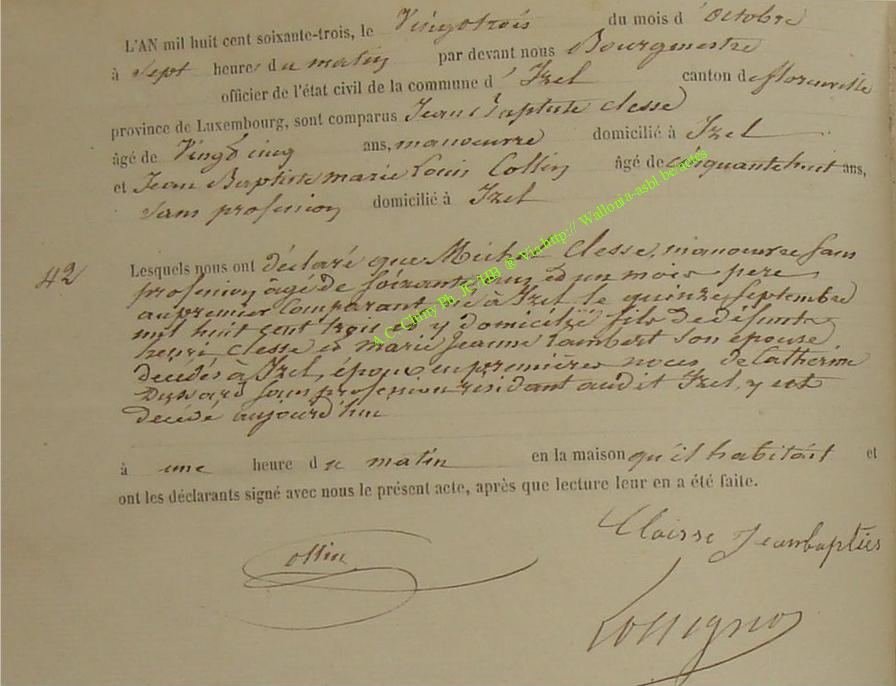 L'AN mil huit cent soixante-trois, le Vingt trois du mois d' Octobre
à sept heures du matin par devant nous Bourgmestre
officier de l'état civil de la commune d' Izel canton de florenville
province de Luxembourg, sont comparus Jean Baptiste Clesse
âgé de Vingt cinq ans, manoeuvre domicilié à Izel
et Jean Baptiste marie Louis Collin âgé de cinquante huit ans,
sans profession domicilié à Izel
42
Lesquels nous ont déclaré que Michel Clesse, manoeuvre sans
profession âgé de soixante ans et un mois pere
au premier Comparant né à Izel le quinze Septembre
mil huit cent trois et y domicilié fils de défunts
henri Clesse et marie Jeanne Lambert son épouse
décédés à Izel, époux en premières noces de Catherine
sans profession résidant audit Izel, y est
décédé aujourd'hui
à une heure du matin en la maison qu'il habitait et
ont les déclarants signé avec nous le présent acte, après que lecture leur en a été faite.
Collin
Claisse Jeanbapties
Rossignon
A C Chiny Ph. JC HB ® Via http:// Wallonia-asbl be/actes